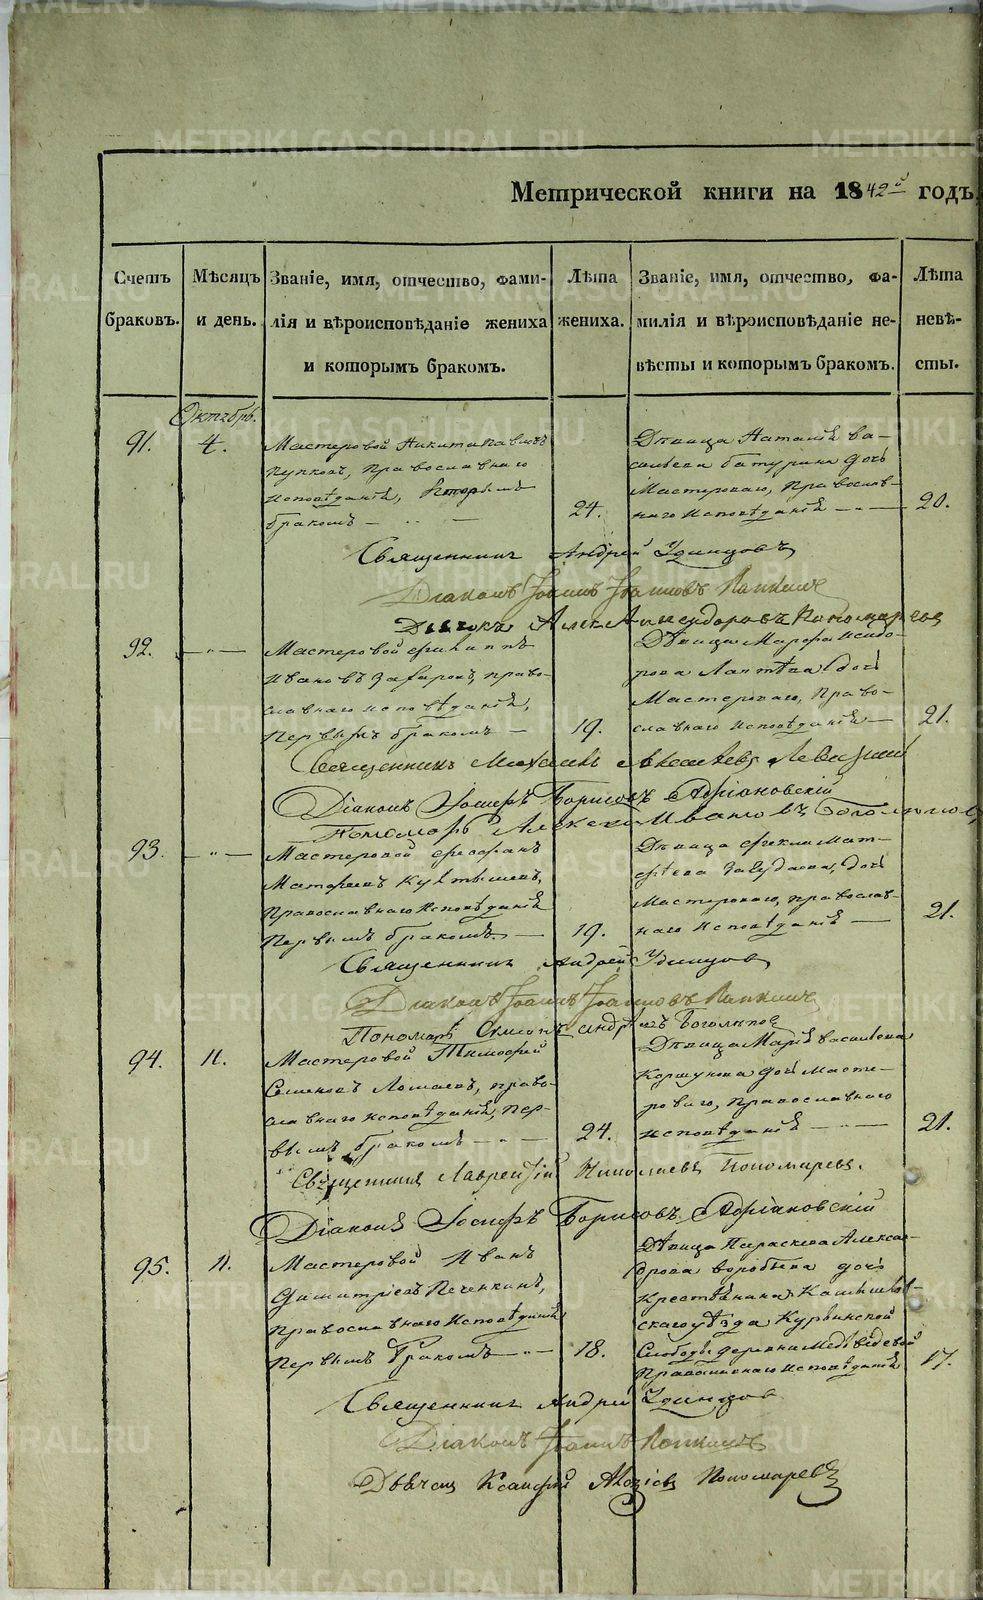 Метрической книги на 1842й годъ
Счетъ браковъ.
Мѣсяцъ и день.
Званіе, имя, отчество, фами-
лія и вѣроисповѣданіе жениха
и которымъ бракомъ.
Лѣта жениха.
Званіе, имя, отчество, фа-
милія и вѣроисповѣданіе не-
вѣсты и которымъ бракомъ.
Лѣта невѣ-
сты.
Октябрь.
91.
4.
Мастеровой Никита Павловъ
Пупковъ, Православнаго
исповѣданія, Вторымъ
бракомъ
24.
Дѣвица Наталія Ва-
сильева Батурина дочь
Мастероваго, Православ-
наго исповѣданія
20.
Священникъ Андрей Удинцовъ
Діаконъ Іоаннъ Іоанновъ Попкинъ
Александровъ Пономаревъ
92.
Мастеровой Филиппъ
Ивановъ право-
славнаго исповѣданія,
Первымъ бракомъ
19.
Дѣвица Марфа Исидо-
рова дочь
Мастероваго, Право-
славнаго исповѣданія
21.
Священникъ Михаилъ Алексѣевъ Левицкій
Діаконъ Іосифъ Борисовъ Адріановскій
Пономарь Алексѣй Ивановъ Боголюбовъ
93.
Мастеровой Феофанъ
Матфеевъ
Православнаго Исповѣданія
Первымъ бракомъ
19.
Дѣвица Фекла Мат-
фѣева дочь
Мастероваго, православ-
наго Исповѣданія
21.
Священникъ Андрей Удинцовъ
Діаконъ Іоаннъ Іоанновъ Попкинъ
Пономарь Симеонъ Боголѣповъ
94.
11.
Мастеровой Тимофей
Семеновъ Ломаевъ, право-
славнаго исповѣданія, Пер-
вымъ бракомъ
24.
Дѣвица Марія Васильева
Коршунова дочь Масте-
роваго, Православнаго
исповѣданія
21.
Священникъ Лаврентій Николаевъ Пономаревъ.
Діаконъ Іосифъ Борисовъ Адріановскій
95.
11.
Мастеровой Иванъ
Димитріевъ Печенкинъ,
Православнаго Исповѣданія
Первымъ бракомъ
18.
Дѣвица Параскева Алексан-
дрова Воробьева дочь
Крестьянина Камышлов-
скаго уѣзда Курьинской
Слободы деревни Медвѣдевой
Православнаго исповѣданія
17.
Священникъ Андрей Удинцовъ
Діаконъ Іоаннъ Попкинъ
Дьячекъ Пономаревъ
METRIKI.GASO-URAL.RU